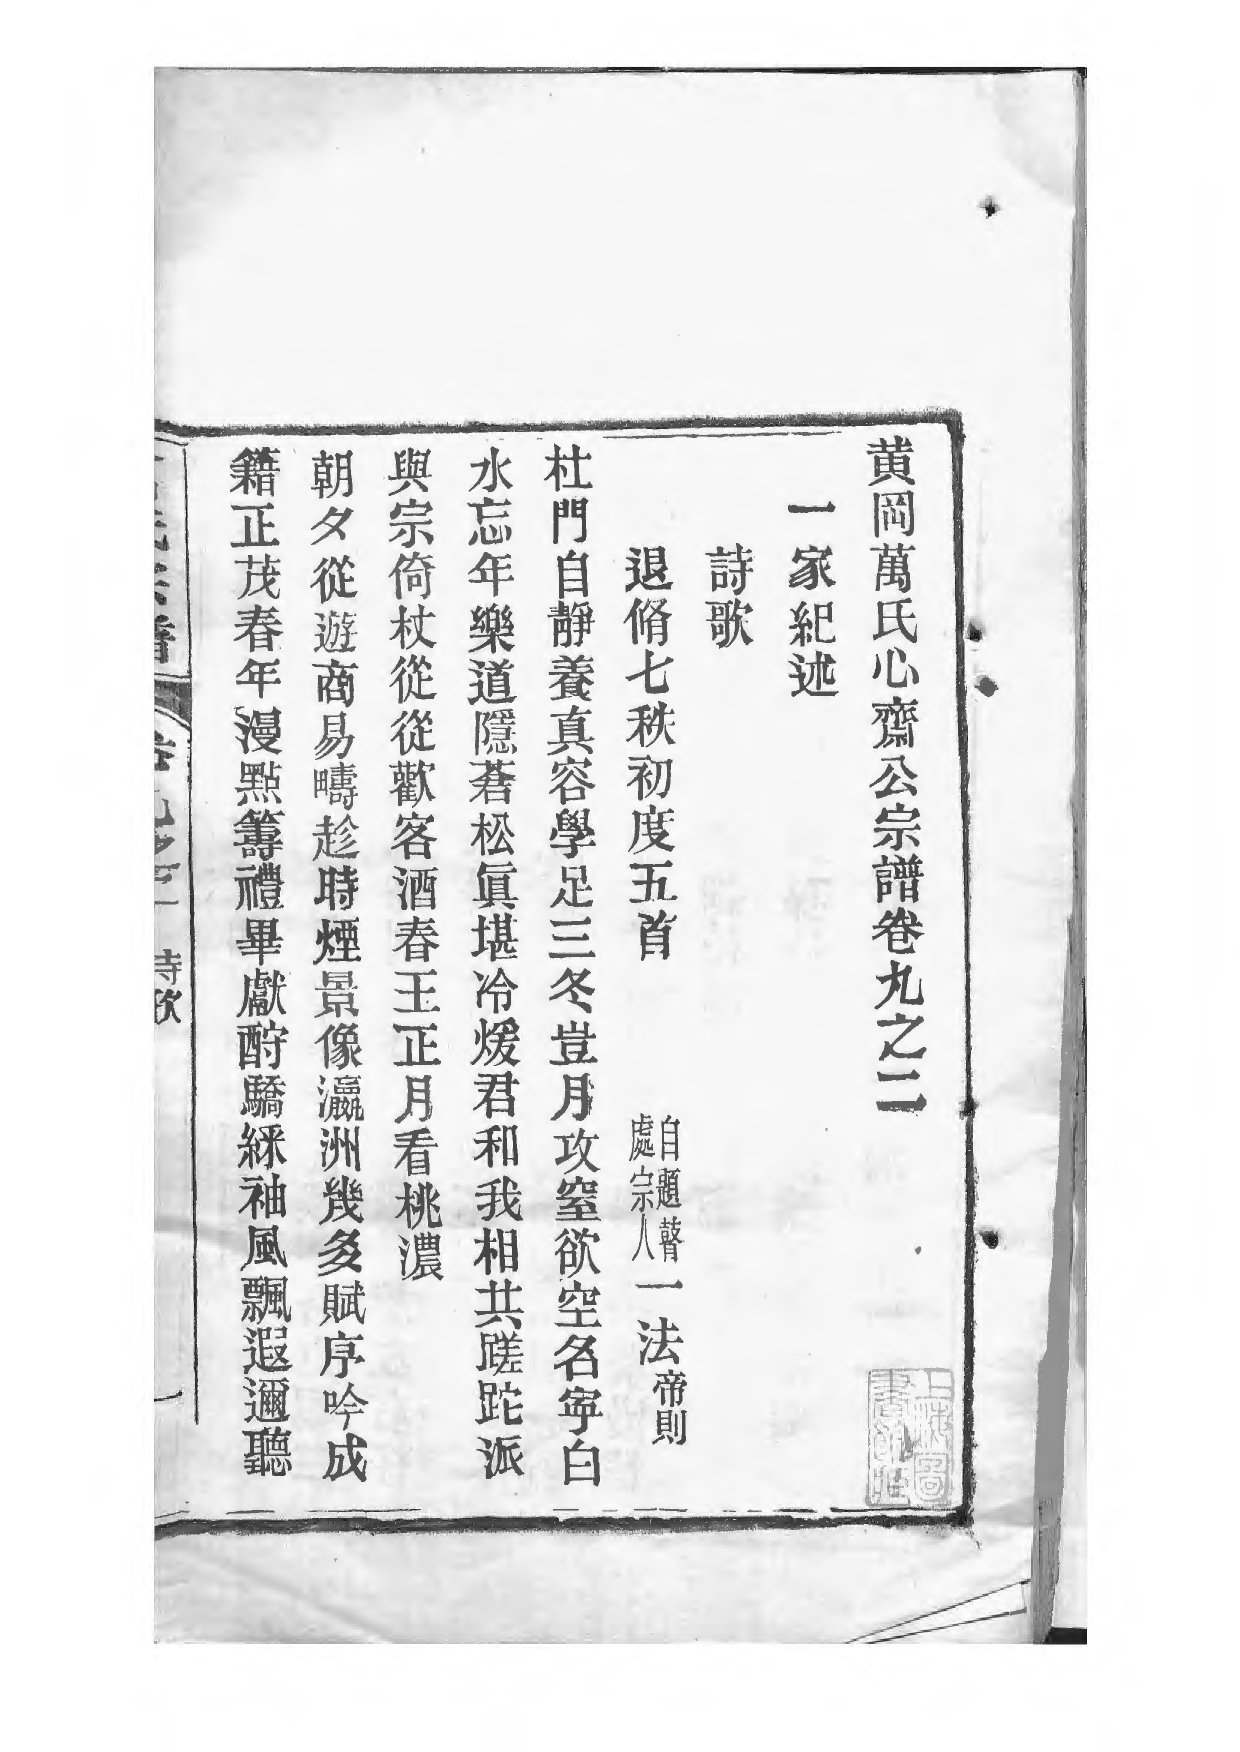 黄岡萬氏心齋公宗譜卷九之二
一家紀述
詩歌
退脩七秩初度五首 自題瞽處宗人 一法帝則
杜門自靜養真容學足三冬豈月攻窒欲空名寧白
水忘年樂道隱蒼松眞堪冷煖君和我相共蹉跎派
與宗倚杖從從歡客酒春王正月看桃濃
朝夕從遊商易疇趁時煙景像瀛洲幾多賦序吟成
籍正茂春年漫點籌禮畢獻酧驕綵袖風飄遐邇聽
詩歌